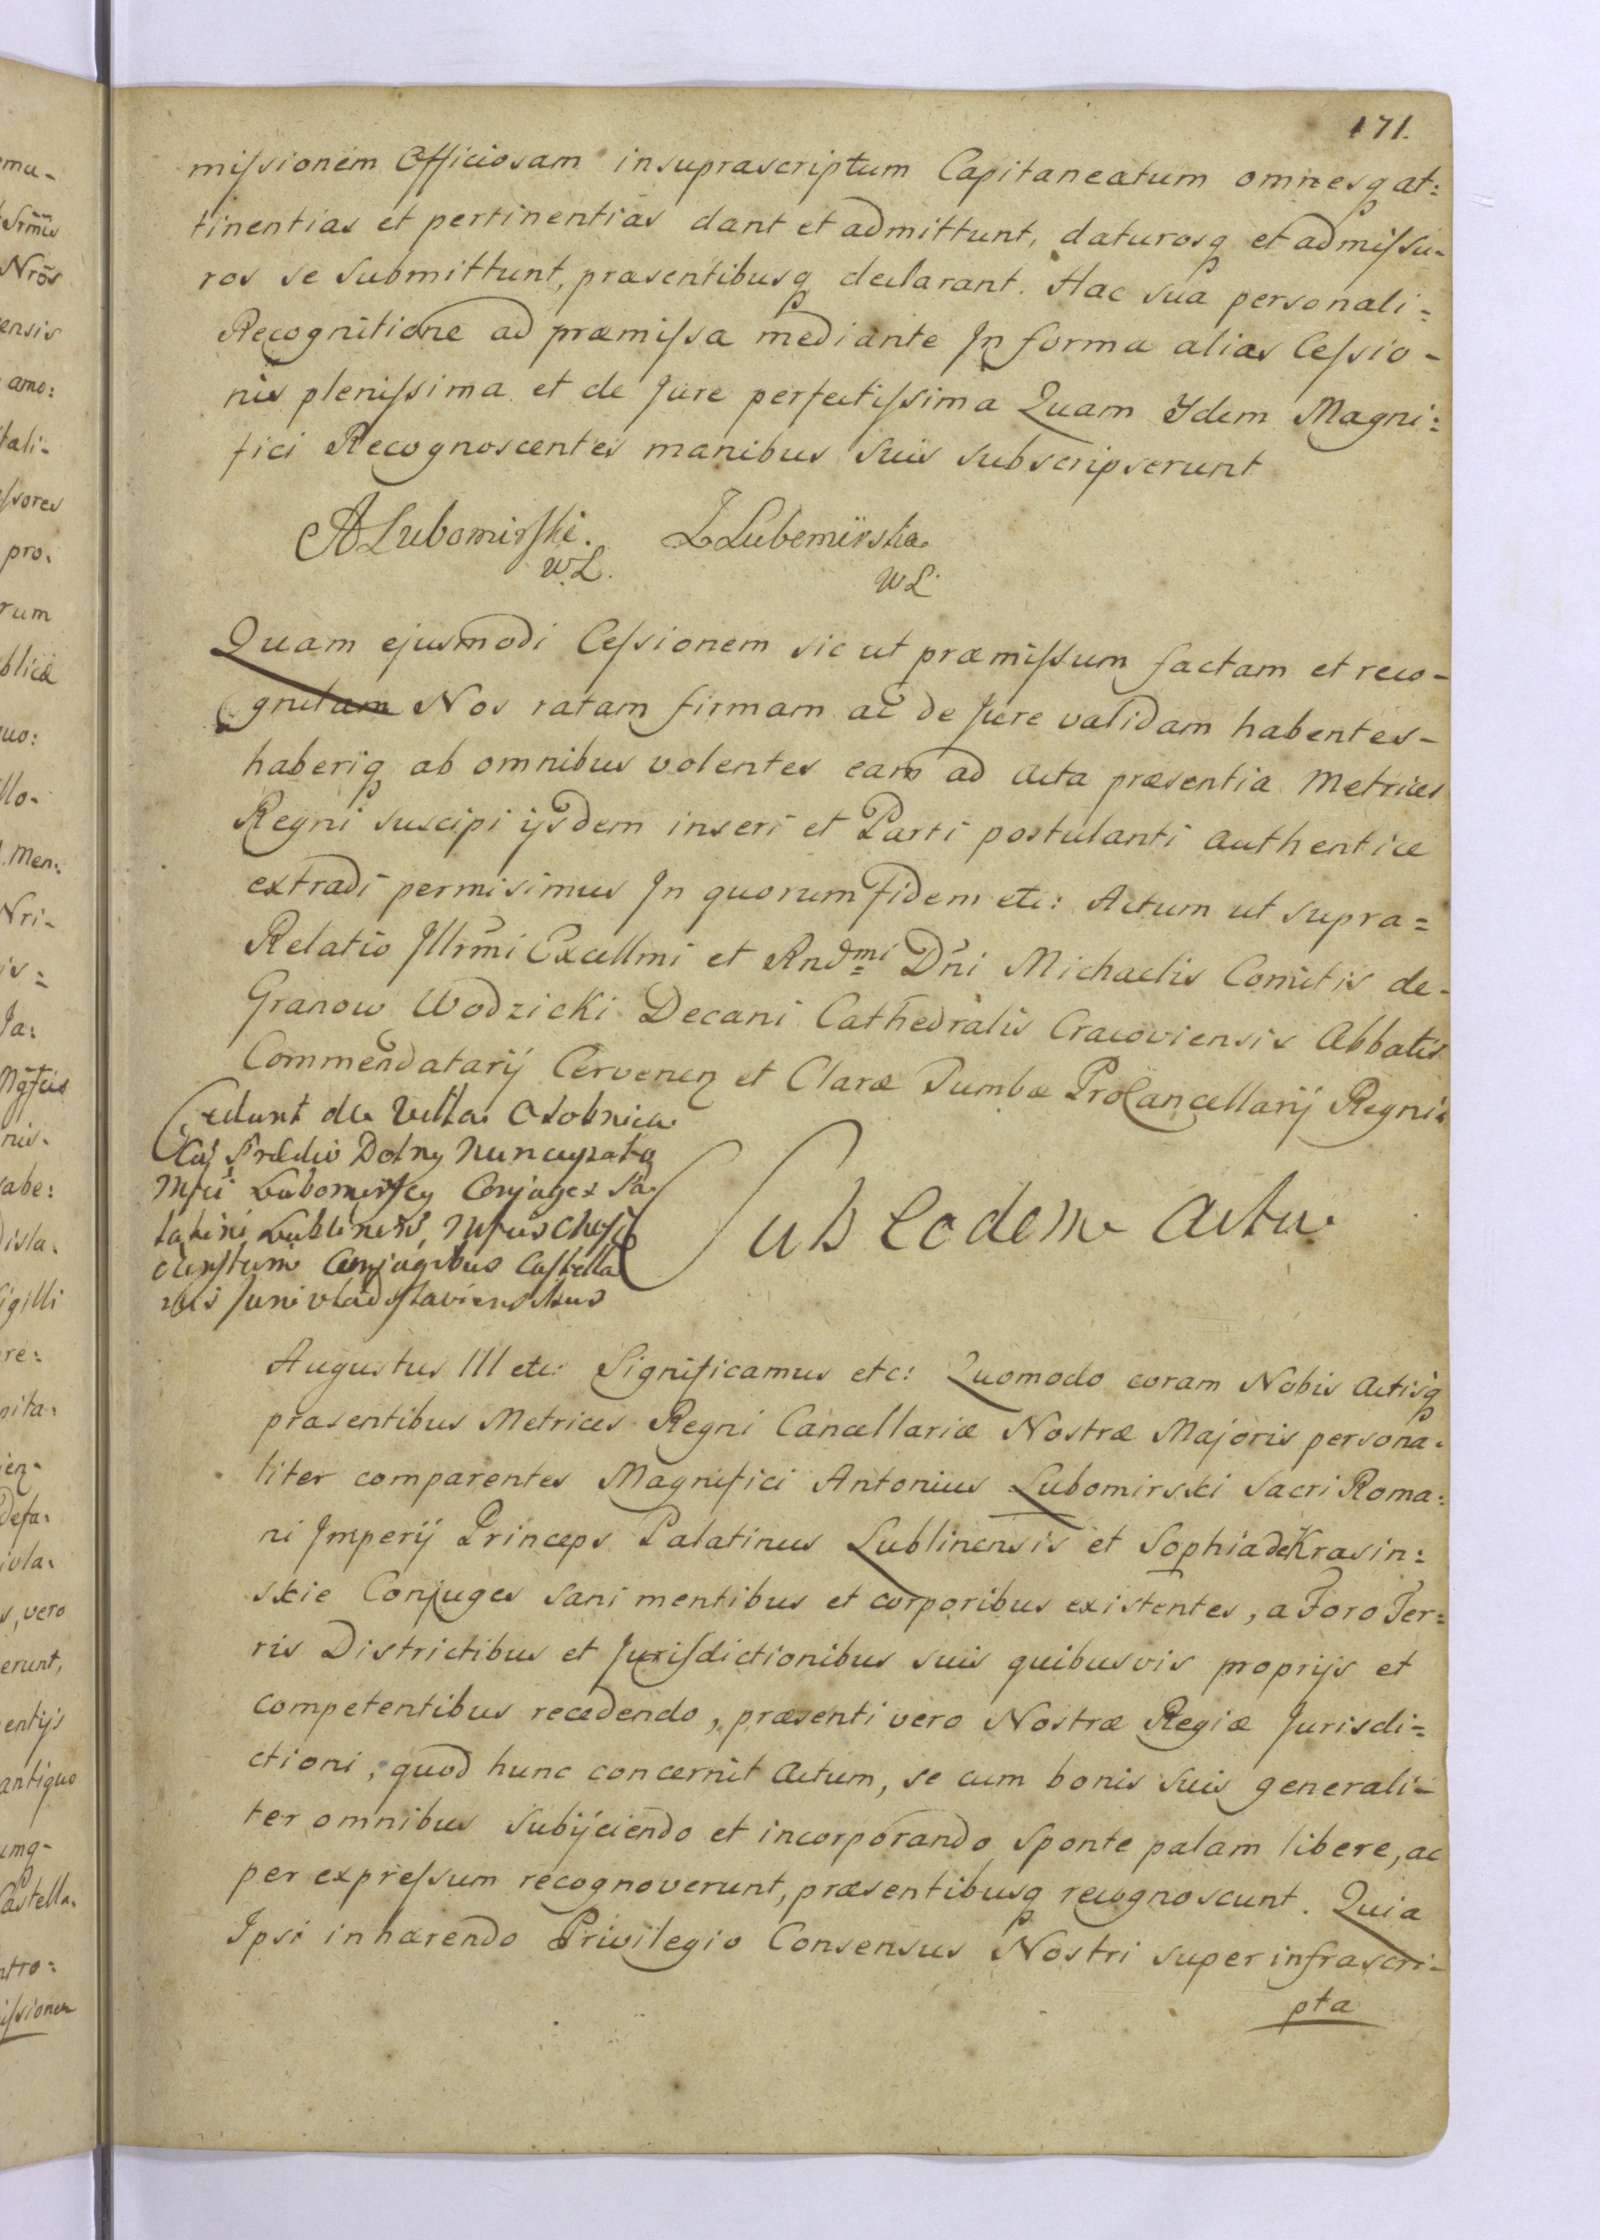 171.
missionem Officiosam insuprascriptum Capitaneatum omnesq at:
tinentias et pertinentias dant et admittunt, daturosq et admissu-
ros se submittunt, præsentibusq declarant. Hac sua personali:
Recognitione ad præmissa mediante In forma alias Cessio-
nis plenissima et de Jure perfectissima Quam Ydem Magni:
fici Recognoscentes manibus suis subscripserunt
ALubomirski. ZLubemirska.
w.L. wL
Quam ejusmodi Cessionem sic ut præmissum factam et reco-
gnitam Nos ratam firmam ac de Jure validam habentes-
haberiq ab omnibus volentes eam ad acta præsentia Metrices
Regni suscipi ijsdem inseri et Parti postulanti authentice
extradi permisimus In quorum fidem etc: Actum ut supra=
Relatio Illrmi Excellmi et Rndmi Dni Michaelis Comitis de-
Granow Wodzicki Decani Cathedralis Cracoviensis Abbatis
Commendatarij Cervenen et Claræ Tumbæ ProCancellarij Regni.
Cedunt de Villa Osobnica
Prædio Dolny nuncupato
Mfci Lubomirscy Conjuges Pa
latini Lublinens,
Conjugibus Castella
nis Junivladislaviensibus
Sub Eodem Actu
Augustus III etc: Significamus etc: Quomodo coram Nobis Actisq
præsentibus Metrices Regni Cancellariæ Nostræ Majoris persona-
liter comparentes Magnifici Antonius Lubomirski Sacri Roma:
ni Imperij Princeps Palatinus Lublinensis et Sophia de Krasin:
skie Conjuges sani mentibus et corporibus existentes, a Foro Ter=
ris Districtibus et Jurisdictionibus suis quibusvis proprijs et
competentibus recedendo, præsenti vero Nostræ Regiæ Jurisdi=
ctioni, quod hunc concernit Actum, se cum bonis suis generali=
ter omnibus subijciendo et incorporando sponte palam libere, ac
per expressum recognoverunt, præsentibusq recognoscunt. Quia
Ipsi inhærendo Privilegio Consensus Nostri super infrascri-
pta